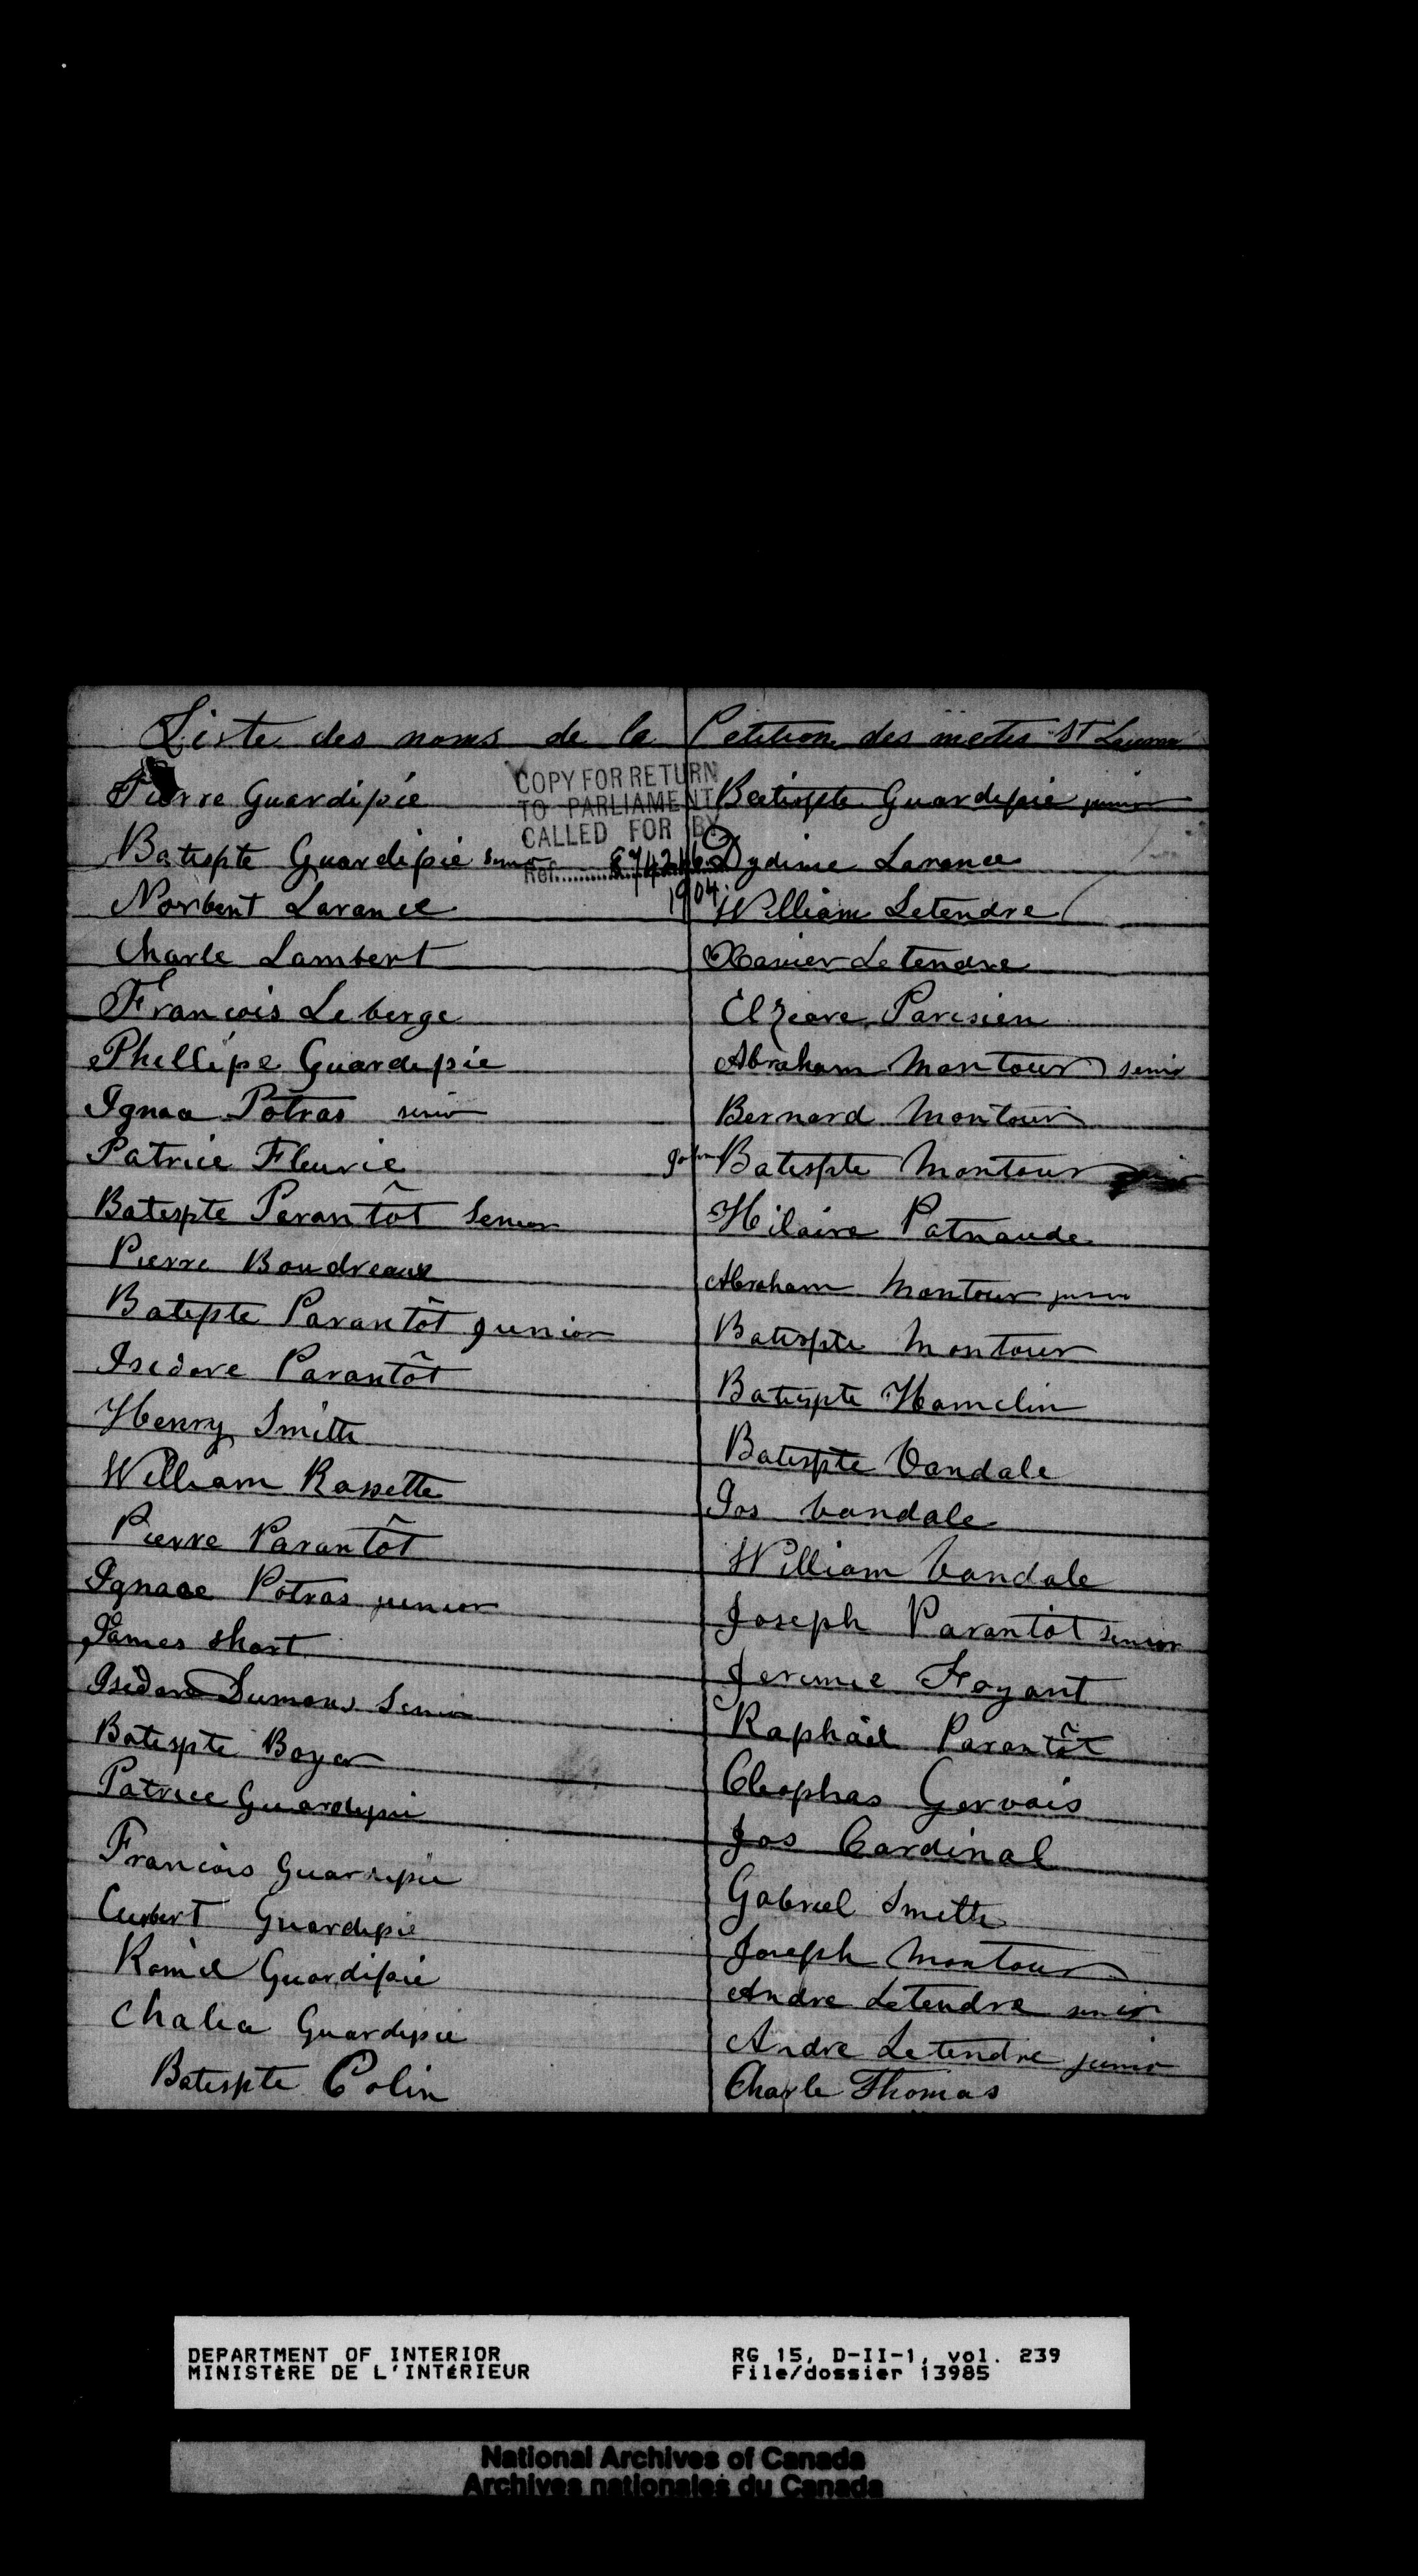 Liste des noms de la Petition des metis St
COPY FOR RETURN
TO PARLIAMENT
CALLED FOR BY
Ref. 874246
1904.
Pierre Guardipie
Batispte Guardipie senior
Norbert Larance
Charle Lambert
Francois Leberge
Phillipe Guardipie
Ignace Potras senior
Patrice Fleurie
Batispte Parantôt Senior
Pierre Boudreaux
Batispte Parantôt junior
Isidore Parantôt
Henry Smith
William Rassette
Pierre Parantôt
Ignace Potras junior
James Short
Isidore Dumons Senior
Batispte Boyer
Patrice Guardipie
Francois Guardipie
Cuxbert Guardipie
Guardipie
Guardipie
Batispte Colin
Batispte Guardipie junior
Dydime Larance
William Letendre
Xavier Letendre
Elzeare Parisien
Abraham Montour senior
Bernard Montour
John Batispte Montour
Hilaire Patnaude
Abraham Montour junior
Batispte Montour
Batispte Hamelin
Batispte Vandale
Jos Vandale
William Vandale
Joseph Parantôt senior
Jeremie Frayant
Raphael Parantôt
Cleophas Gervais
Jos Cardinal
Gabriel Smith
Joseph Montour
Andre Letendre senior
Andre Letendre junior
Charle Thomas
DEPARTMENT OF INTERIOR
MINISTÈRE DE L'INTÉRIEUR
RG 15, D-II-1, vol. 239
File/dossier 13985
National Archives of Canada
Archives nationales du Canada